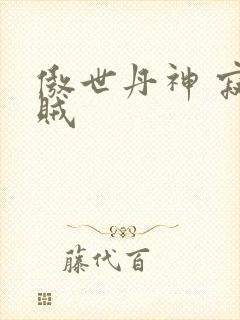 傲世丹神 寂
贼
藤代百